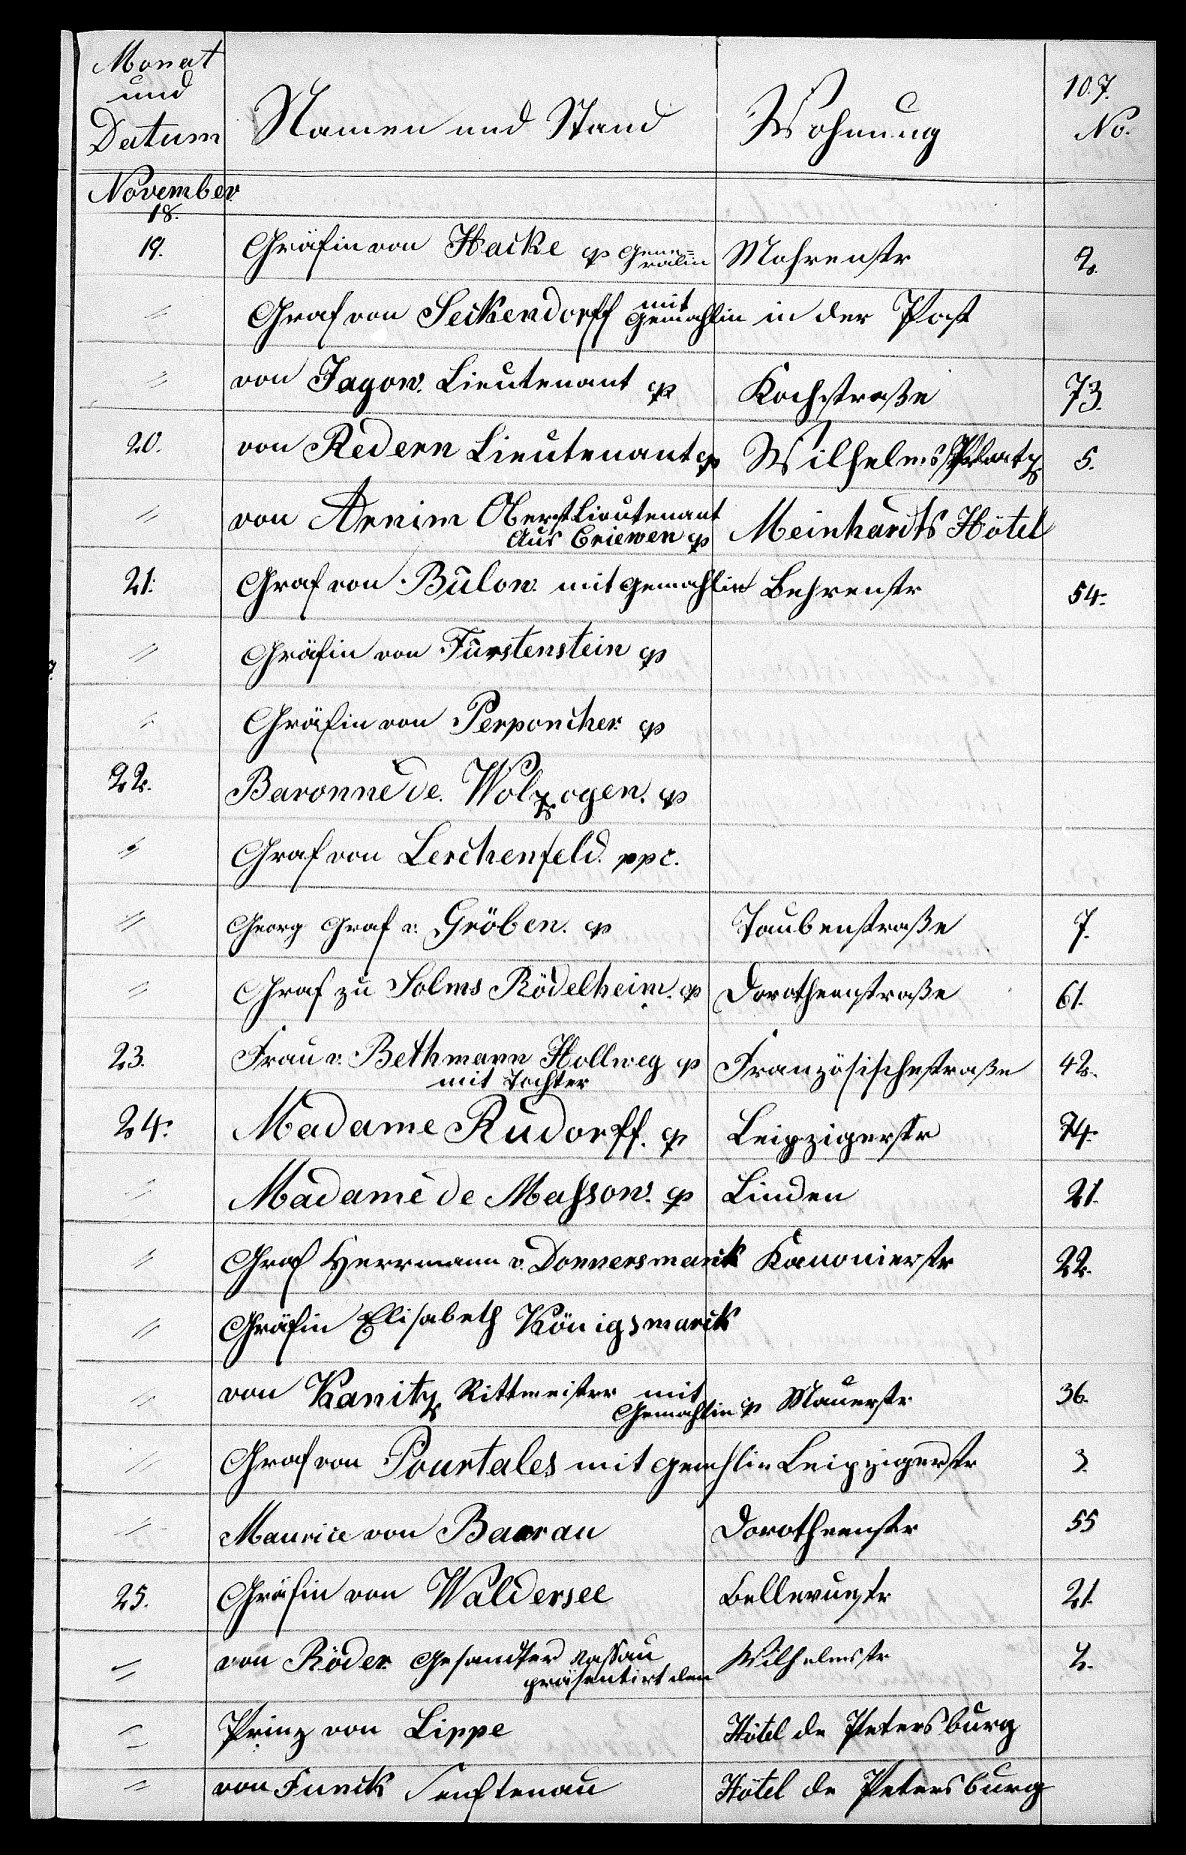 Monat
und
Datum Namen und Stand Wohnung 107.
No.
November
18.
19. Gräfin von Hacke gp Gene=
ralin Mohrenstr 2.
" Graf von Seckendorff mit
Gemahlin in der Post
" von Jagow. Lieutenant gp Kochstraße 73.
20. von Redern Lieutenant gp Wilhelms Platz 5.
" von Arnim Oberstlieutenant
Aus Criewen gp Meinhardts Hôtel
21. Graf von Bülow. mit Gemahlin Behrenstr 54.
" Gräfin von Fürstenstein gp
" Gräfin von Perponcher. gp
22. Baronne de. Wolzogen. gp
" Graf von Lerchenfeld. ppc.
" Georg Graf v. Gröben. gp Taubenstraße 7.
" Graf zu Solms Rödelheim. gp Dorotheenstraße 61.
23. Frau v. Bethmann Hollweg gp
mit Tochter Französischestraße 42.
24. Madame Rudorff. gp Leipzigerstr 74.
" Madame de Massow. gp Linden 21.
" Graf Herrmann v. Donnersmarck Kanonierstr 22.
" Gräfin Elisabeth Königsmarck
" von Kanitz Rittmeister mit
Gemahlin gp Mauerstr 36.
" Graf von Pourtales mit Gemhlin Leipzigerstr 3.
" Maurice von Barrau Dorotheenstr 55
25. Gräfin von Waldersee Bellevuestr 21.
" von Röder. Gesandter Nassau
präsentirt den Wilhelmsstr 2.
" Prinz von Lippe Hôtel de Petersburg
" von Funck Senftenau Hôtel de Petersburg